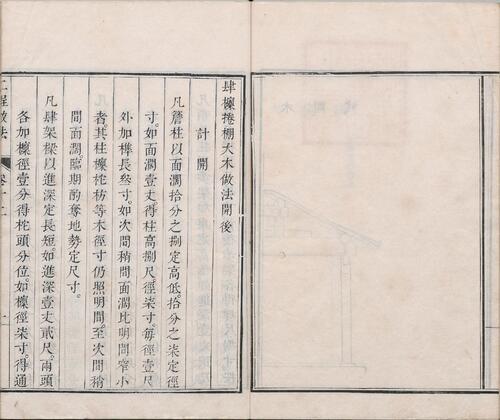 肆檁捲棚大木做法開後
計開
凡簷柱以面濶拾分之捌定高低拾分之柒定徑
寸如面濶壹丈得柱高捌尺徑柒寸每徑壹尺
外加榫長叁寸如次間稍間面濶比明間窄小
者其柱檁柁枋等木徑寸仍照明間至次間稍
間面濶臨期酌奪地勢定尺寸
凡肆架樑以進深定長短如進深壹丈貳尺兩頭
各加檁徑壹分得柁頭分位如檁徑柒寸得通
工程做法
卷十二